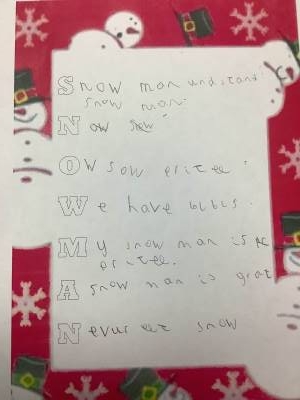 Snow man undstand
snow man.
Now
Ow sow eritee.
We have blbls.
My snow man is
eritee.
A snow man is grat
Nevur eet snow